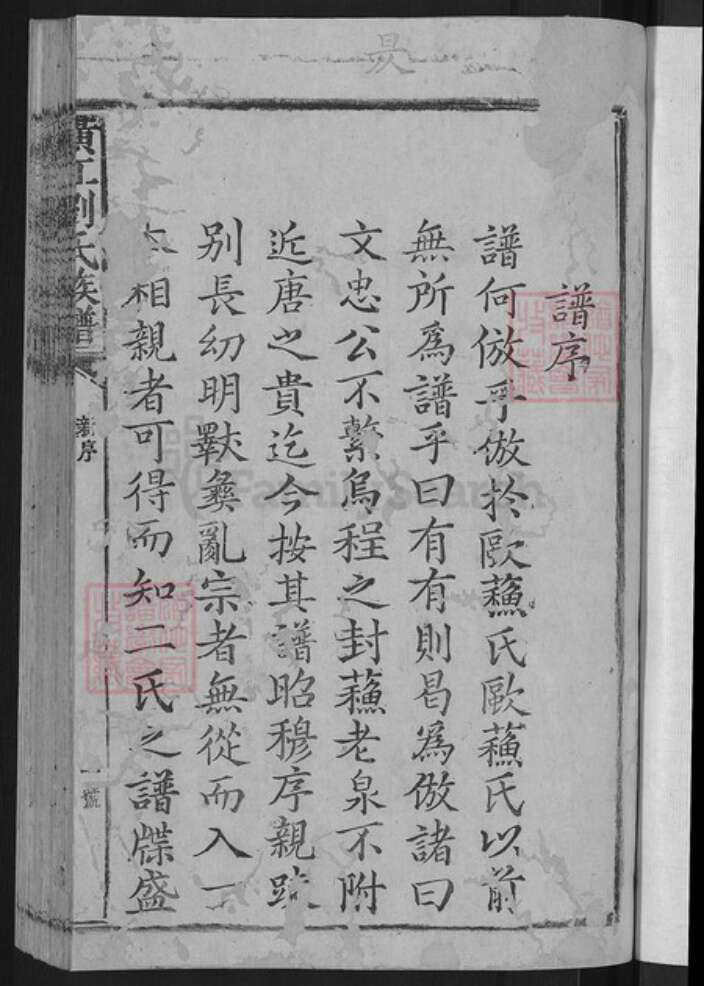 譜序
譜何倣乎倣扵歐蘓氏歐蘓氏以前
無所爲譜乎曰有有則曷爲倣諸曰
文忠公不繫烏程之封蘓老泉不附
近唐之貴迄今按其譜昭穆序親踈
别長幼明斁彝亂宗者無從而入
相親者可得而知二氏之譜牒盛
黄江劉氏族譜
新序
一號
FamilySearch